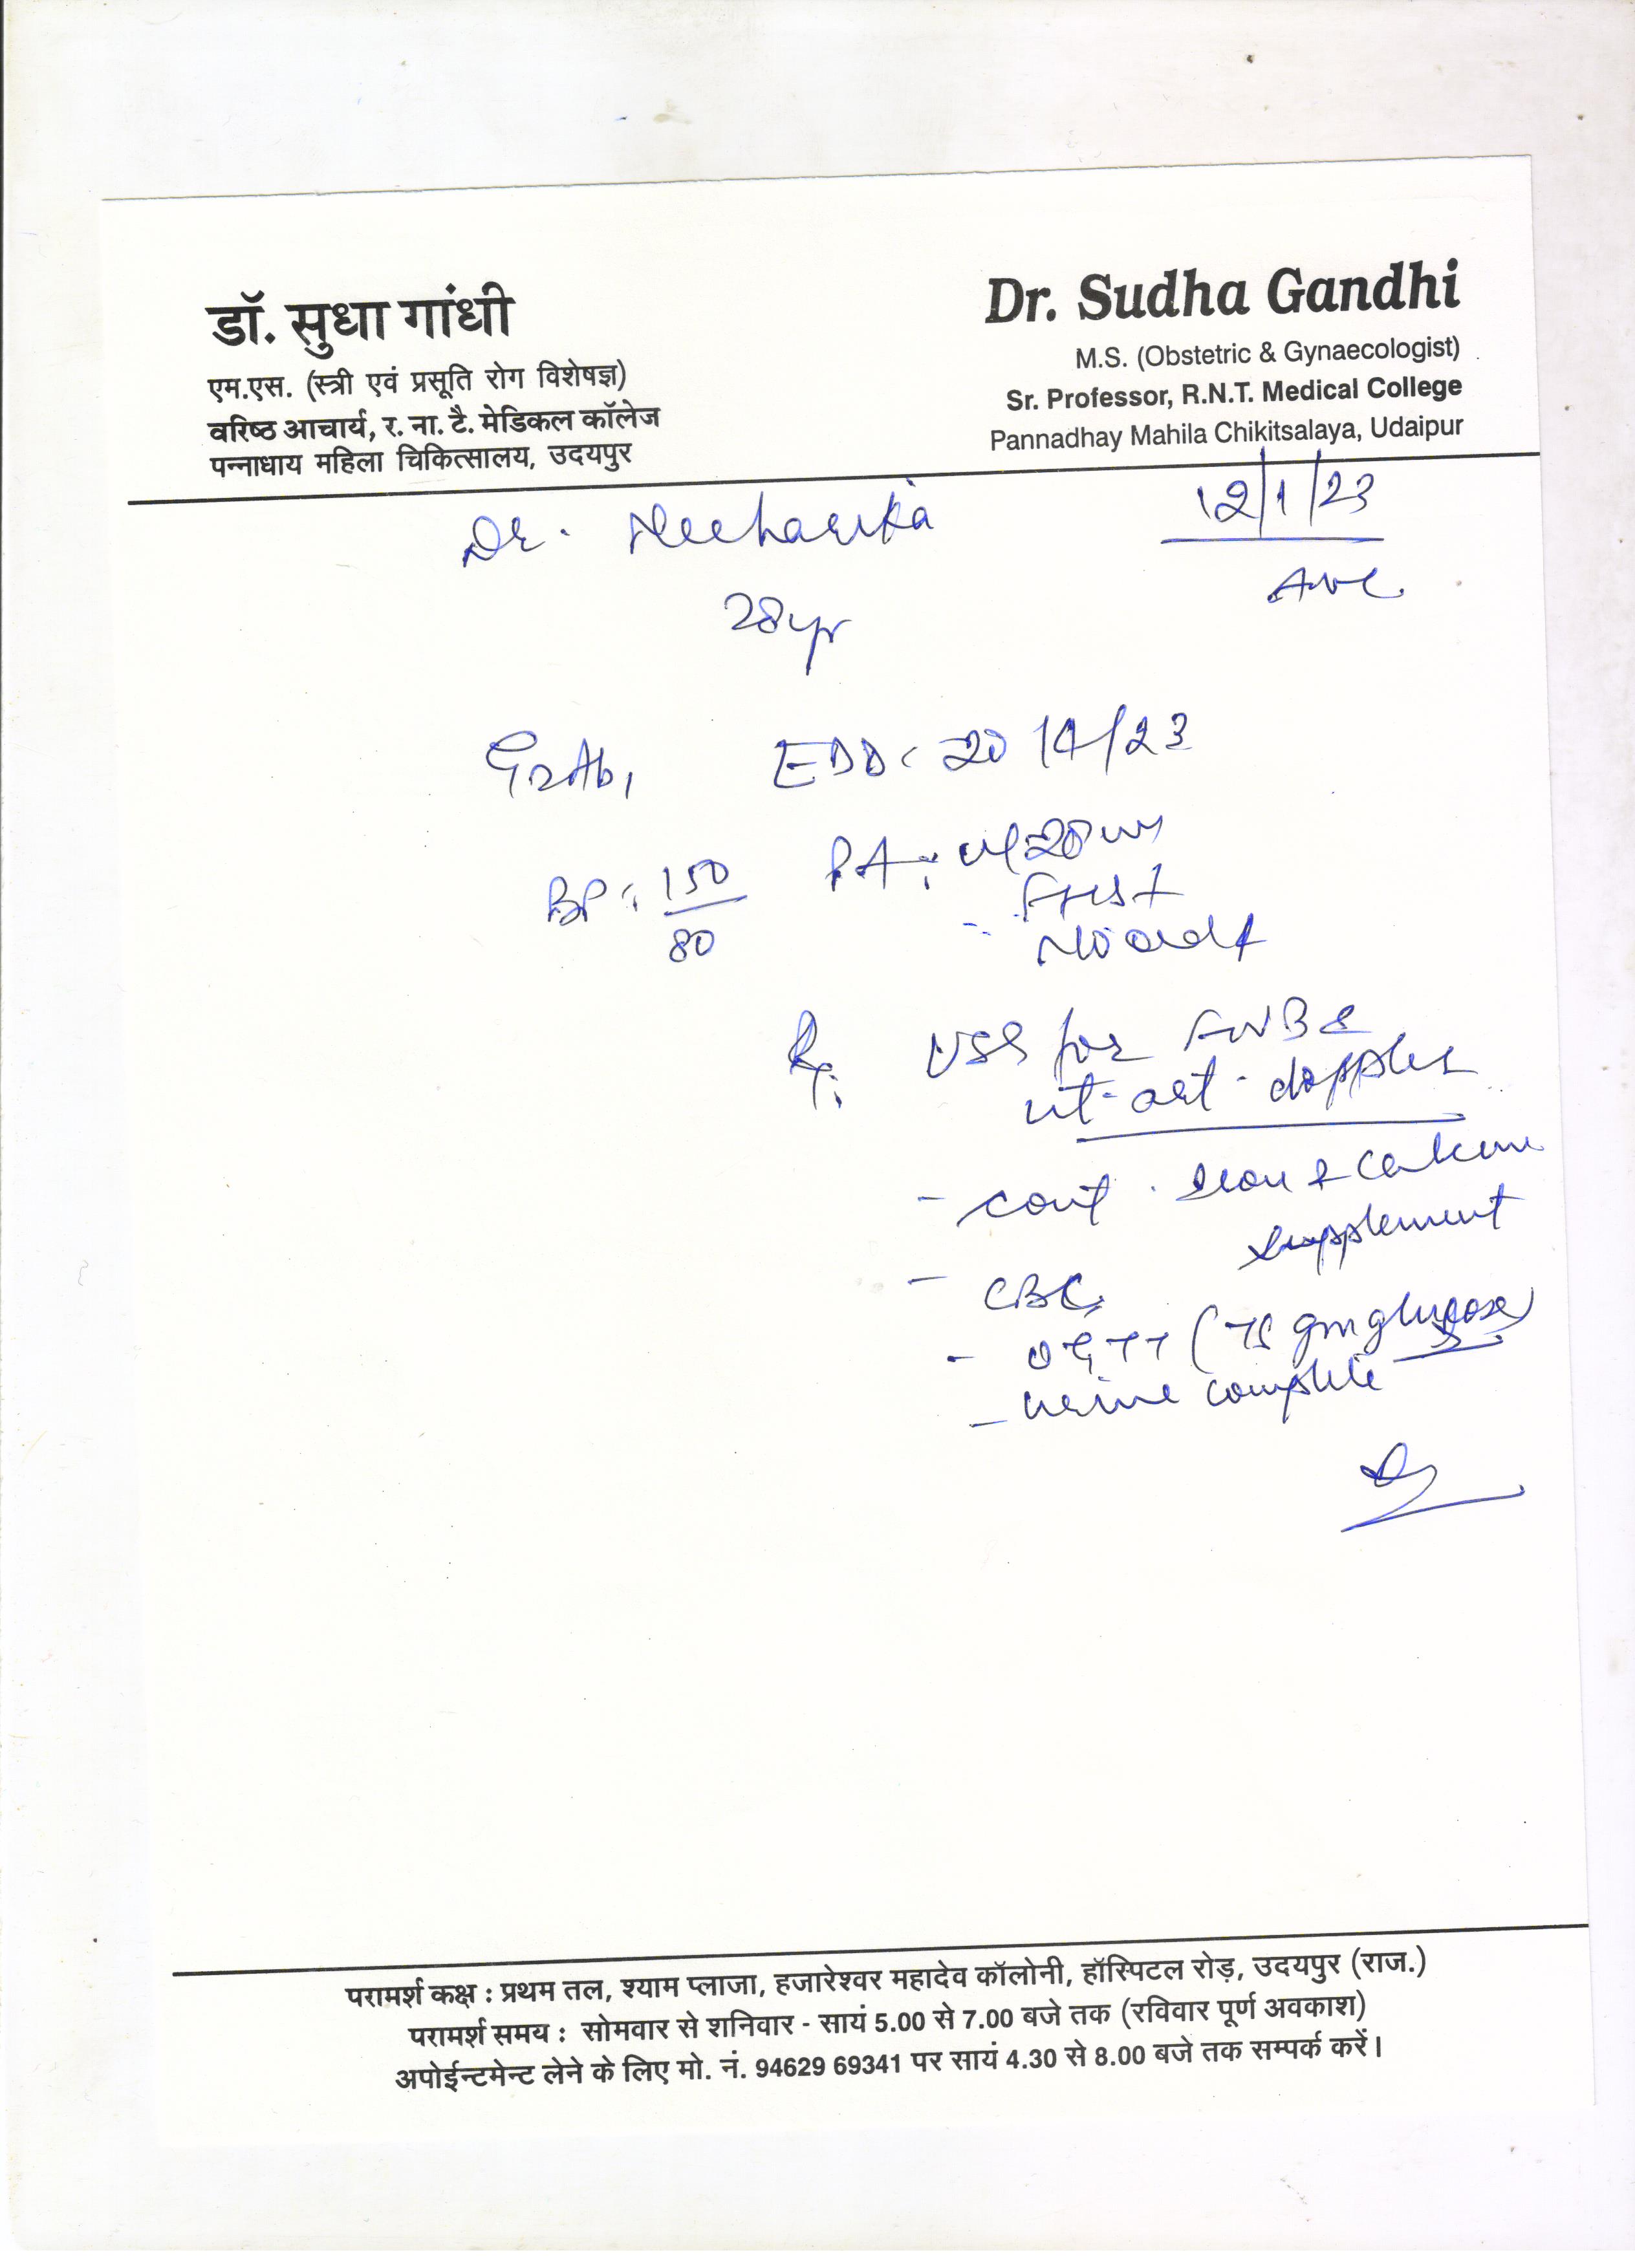 डॉ. सुधा गांधी
एम.एस. (स्त्री एवं प्रसूति रोग विशेषज्ञ)
वरिष्ठ आचार्य, र. ना. टै. मेडिकल कॉलेज
पन्नाधाय महिला चिकित्सालय, उदयपुर
Dr. Sudha Gandhi
M.S. (Obstetric & Gynaecologist)
Sr. Professor, R.N.T. Medical College
Pannadhay Mahila Chikitsalaya, Udaipur
12/1/23
Dr. Neeharika
28yr
G2Ab1 EDD: 20/4/23
BP: 150/80 PA:
FHS+
Rx USG for FWB &
ut-art-doppler
- cont. Iron & Calcium
supplement
- CBC,
- OGTT (75 gm glucose)
- urine complete
परामर्श कक्ष : प्रथम तल, श्याम प्लाजा, हजारेश्वर महादेव कॉलोनी, हॉस्पिटल रोड़, उदयपुर (राज.)
परामर्श समय : सोमवार से शनिवार - सायं 5.00 से 7.00 बजे तक (रविवार पूर्ण अवकाश)
अपोईन्टमेन्ट लेने के लिए मो. नं. 94629 69341 पर सायं 4.30 से 8.00 बजे तक सम्पर्क करें।